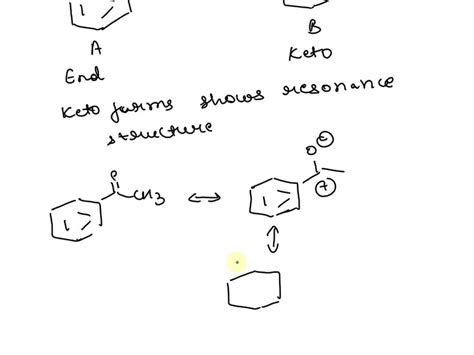 A
B
End
Keto
Keto forms shows resonance
structure
O ⊖
O
CH3
⊕